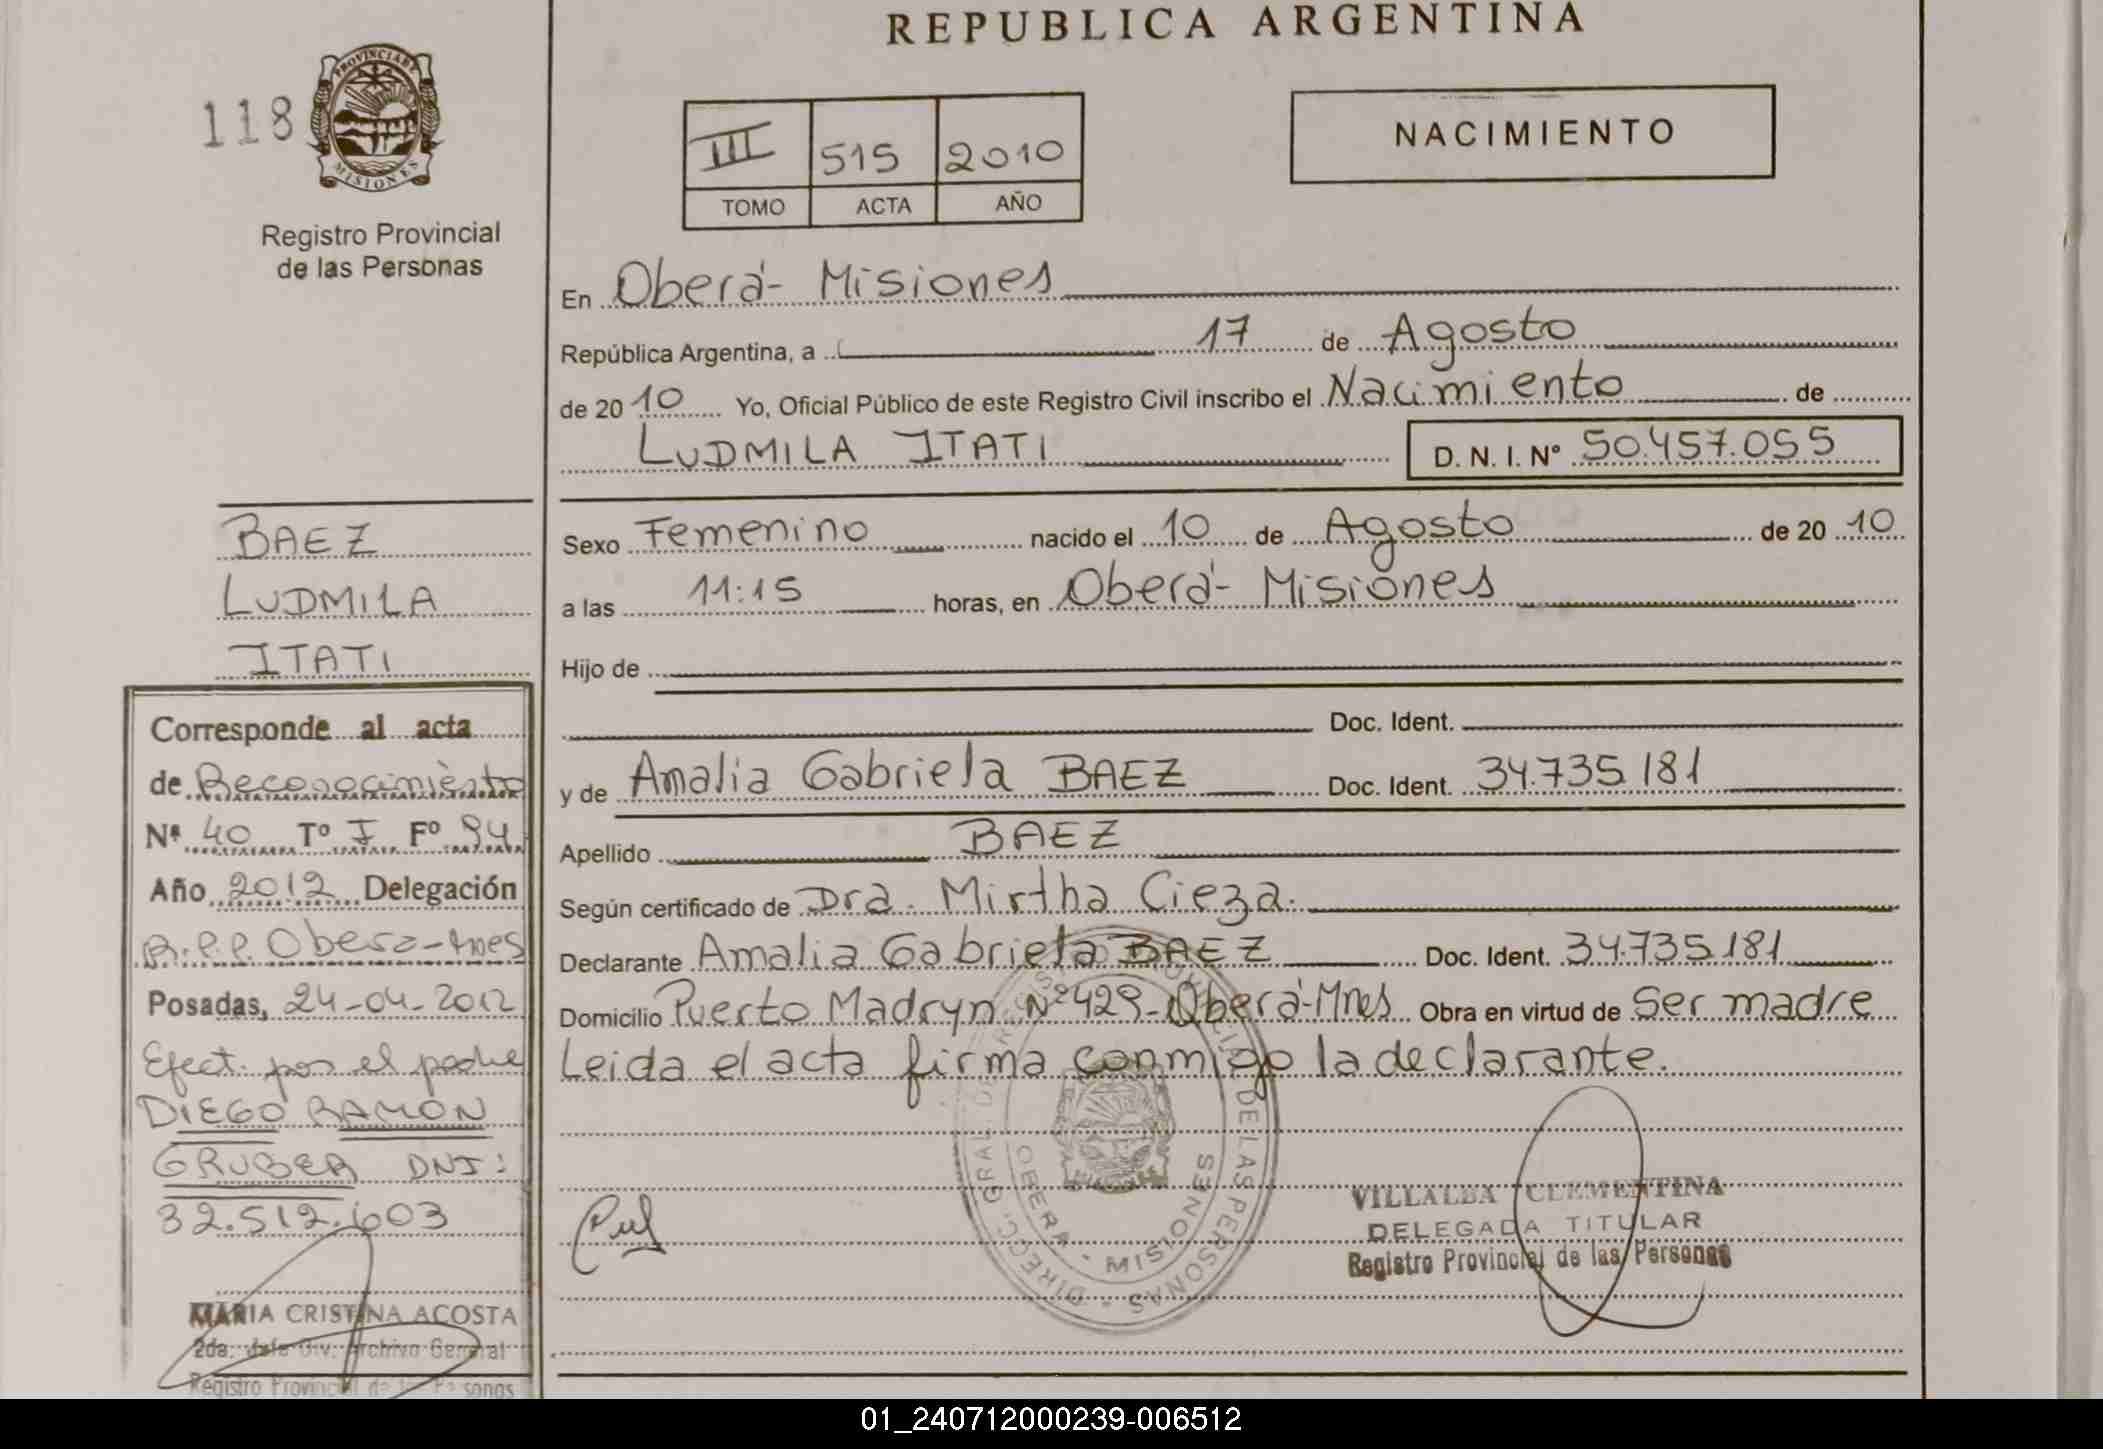 REPUBLICA ARGENTINA
118
PROVINCIA DE
MISIONES
Registro Provincial
de las Personas
III 515 2010
TOMO ACTA AÑO
NACIMIENTO
En Oberá- Misiones
República Argentina, a 17 de Agosto
de 2010 Yo, Oficial Público de este Registro Civil inscribo el Nacimiento de
LUDMILA ITATI D. N. I. Nº 50.457.055
Sexo Femenino nacido el 10 de Agosto de 2010
a las 11:15 horas, en Oberá- Misiones
Hijo de
Doc. Ident.
y de Amalia Gabriela BAEZ Doc. Ident. 34.735.181
Apellido BAEZ
Según certificado de Dra. Mirtha Cieza.
Declarante Amalia Gabriela BAEZ Doc. Ident. 34.735.181
Domicilio Puerto Madryn Nº 429-Oberá-Mnes Obra en virtud de Ser madre
Leida el acta firma conmigo la declarante.
BAEZ
LUDMILA
ITATI
Corresponde al acta
de Reconocimiento
Nº 40 Tº I Fº 94
Año 2012 Delegación
R.P.P. Obera-Mnes
Posadas, 24-04-2012
Efect. por el padre
DIEGO RAMÓN
GRUBER DNI:
32.512.603
MARIA CRISTINA ACOSTA
2da. Jefe Div. Archivo General
Registro Provincial de las Personas
DE LAS PERSONAS - DIRECC. GRAL. DE
OBERA - MISIONES
VILLALBA CLEMENTINA
DELEGADA TITULAR
Registro Provincial de las Personas
01_240712000239-006512